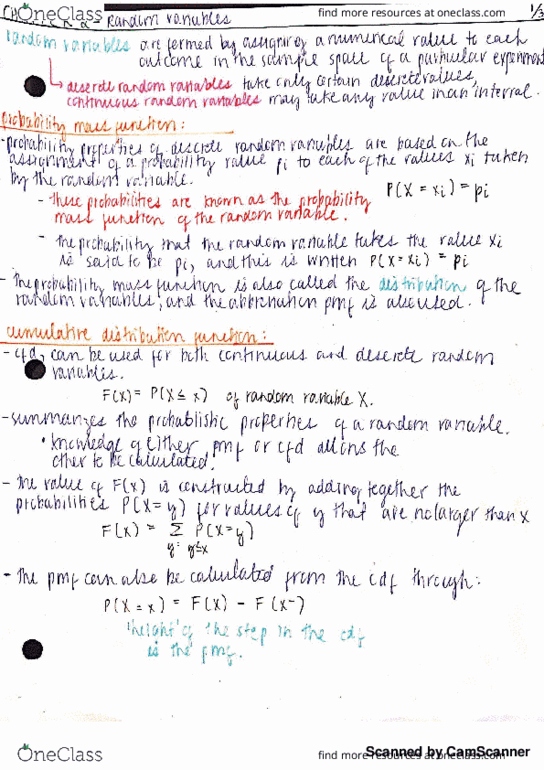 OneClass
find more resources at oneclass.com
1/3
Random variables
random variables are formed by assigning a numerical value to each
outcome in the sample space of a particular experiment
discrete random variables take only certain discrete values,
continuous random variables may take any value in an interval.
probability mass function:
- probability properties of discrete random variables are based on the
assignment of a probability value pi to each of the values xi taken
by the random variable.
P(X = xi) = pi
- these probabilities are known as the probability
mass function of the random variable.
- the probability that the random variable takes the value xi
is said to be pi, and this is written P(X = xi) = pi
- the probability mass function is also called the distribution of the
random variables, and the abbreviation pmf is also used.
cumulative distribution function:
- cfd, can be used for both continuous and descrete random
variables.
F(x) = P(X ≤ x) of random variable X.
- summarizes the probablistic properties of a random variable.
• knowledge of either pmf or cfd allows the
other to be calculated.
- the value of F(x) is constructed by adding together the
probabilities P(X=y) for values of y that are no larger than x
F(x) = Σ P(X=y)
y: y≤x
- the pmf can also be calculated from the cdf through:
P(X = x) = F(x) - F(x⁻)
'height' of the step in the cdf
is the pmf.
OneClass
find more resources at oneclass.com
Scanned by CamScanner